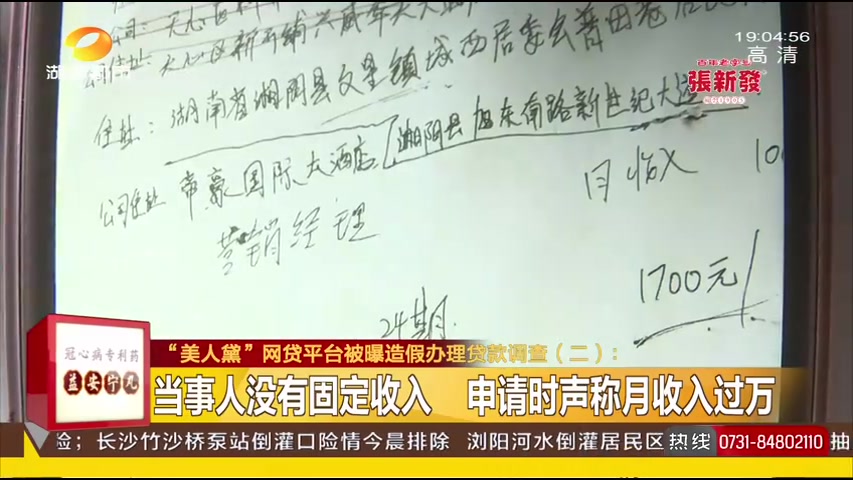 19:04:56
高清
百年老字号
張新發
公司: 天心区
天心区新开铺兴威
住址: 湖南省湘阴县文星镇城西居委会
湘阴县旭东南路新世纪大道
公司住址 帝豪国际大酒店
月收入 10
营销经理
1700元/
24期
“美人黛”网贷平台被曝造假办理贷款调查（二）：
冠心病专利药
益安宁丸
当事人没有固定收入 申请时声称月收入过万
险；长沙竹沙桥泵站倒灌口险情今晨排除 浏阳河水倒灌居民区
热线 0731-84802110
抽